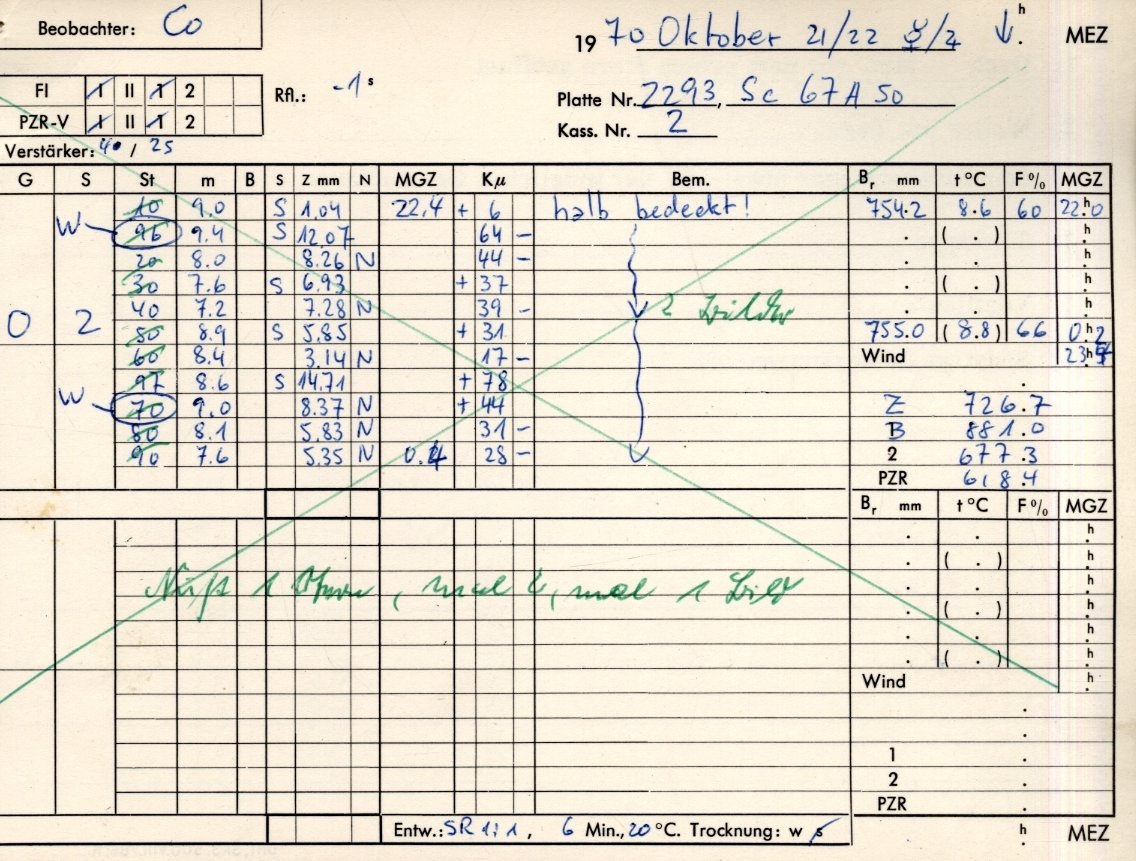 Beobachter: Co
1970 Oktober 21/22 ☿/♃ ↓ h. MEZ
FI I II 1 2
Rfl.: -1 s
Platte Nr. 2293, Sc 67A50
PZR-V I II 1 2
Kass. Nr. 2
Verstärker: 40 / 25
G S St m B S Z mm N MGZ Kμ Bem. Br mm t °C F % MGZ
10 9.0 S 1.04 22.4 + 6 halb bedeckt! 754.2 8.6 60 22.h0
W 96 9.4 S 12.07 64 - . ( . ) h.
20 8.0 8.26 N 44 - . . h.
30 7.6 S 6.93 + 37 . ( . ) h.
40 7.2 7.28 N 39 - 2 Bilder . . h.
0 2 50 8.9 S 5.85 + 31 755.0 (8.8) 66 0.h2
60 8.4 3.14 N 17 - Wind 23h
97 8.6 S 14.71 + 78 .
W 70 9.0 8.37 N + 44 Z 726.7
80 8.1 5.83 N 31 - B 881.0
90 7.6 5.35 N 0.4 28 - 2 677.3
PZR 618.4
Br mm t °C F % MGZ
. . h.
. ( . ) h.
1 , mal 2, mal 1 Bild . . h.
. ( . ) h.
. . h.
. ( . ) h.
Wind h.
.
.
1 .
2 .
PZR .
Entw.: SR 1:1, 6 Min., 20 °C. Trocknung: w s h. MEZ